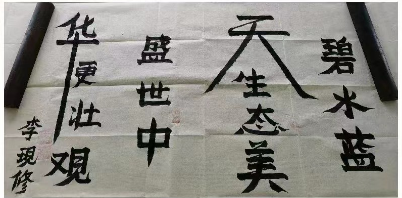 碧水蓝
天生态美
盛世中
华更壮观
李現修